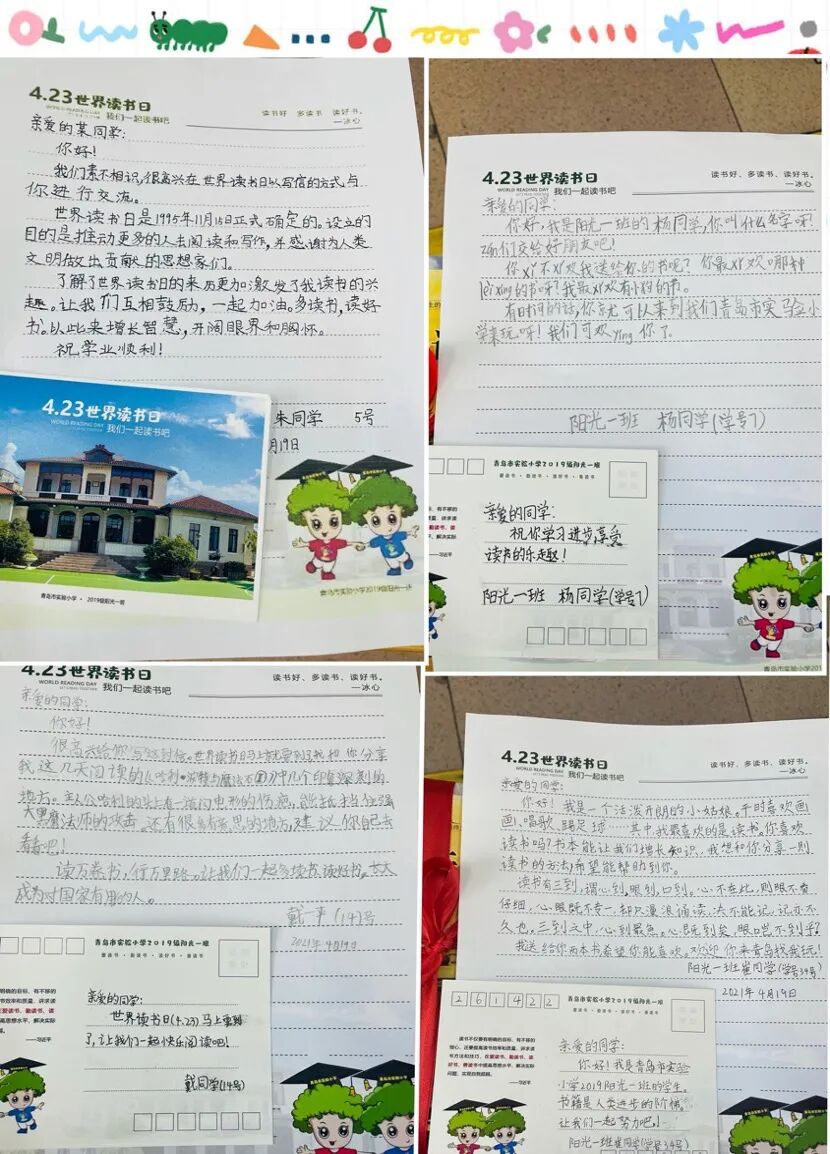 4.23世界读书日
WORLD READING DAY
我们一起读书吧
读书好 多读书 读好书。
—冰心
亲爱的某同学:
你好!
我们素不相识,很高兴在世界读书日以写信的方式与
你进行交流。
世界读书日是1995年11月15日正式确定的。设立的
目的是推动更多的人去阅读和写作,并感谢为人类
文明做出贡献的思想家们。
了解了世界读书日的来历更加激发了我读书的兴
趣。让我们互相鼓励,一起加油。多读书,读好
书。以此来增长智慧,开阔眼界和胸怀。
祝学业顺利!
朱同学 5号
月19日
4.23世界读书日
WORLD READING DAY
我们一起读书吧
青岛市实验小学 · 2019级阳光一班
青岛市实验小学2019级阳光一班
4.23世界读书日
WORLD READING DAY
我们一起读书吧
读书好、多读书、读好书。
—冰心
亲爱的同学:
你好,我是阳光一班的杨同学,你叫什么名字呀!
zán们交给好朋友吧!
你xǐ不xǐ欢我送给你的书呢?你最xǐ欢哪种
lèi xíng的书呀?我最xǐ欢有小狗的书。
有时间的话,你就可以来到我们青岛市实验小
学来玩呀!我们可欢yíng你了。
阳光一班 杨同学(学号7)
青岛市实验小学2019级阳光一班
爱读书 · 勤读书 · 读好书 · 善读书
亲爱的同学:
祝你学习进步,享受
读书的乐趣!
阳光一班 杨同学(学号7)
—习近平
青岛市实验小学201
4.23世界读书日
WORLD READING DAY
我们一起读书吧
读书好、多读书、读好书。
—冰心
亲爱的同学:
你好!
很高兴给你写这封信。世界读书日马上就要到了,我想和你分享
我这几天阅读的《哈利·波特与魔法石》中几个印象深刻的
地方。主人公哈利的头上有一道闪电形的伤疤,能抵挡住强
大黑魔法师的攻击。还有很多有意思的地方,建议你自己去
看看吧!
读万卷书,行万里路。让我们一起多读书,读好书。长大
成为对国家有用的人。
戴 (14)号
2021年4月19日
青岛市实验小学2019级阳光一班
爱读书 · 勤读书 · 读好书 · 善读书
亲爱的同学:
世界读书日(4.23)马上要到
了,让我们一起快乐阅读吧!
戴同学(14号)
—习近平
4.23世界读书日
WORLD READING DAY
我们一起读书吧
读书好、多读书、读好书。
—冰心
亲爱的同学:
你好!我是一个活泼开朗的小姑娘。平时喜欢画
画、唱歌、踢足球……其中,我最喜欢的是读书。你喜欢
读书吗?书本能让我们增长知识,我想和你分享一则
读书的方法,希望能帮助到你。
读书有三到,谓心到,眼到,口到。心不在此,则眼不看
仔细,心眼既不专一,却只漫浪诵读,决不能记,记亦不
久也。三到之中,心到最急。心既到矣,眼口岂不到乎?
我送给你两本书希望你能喜欢。欢迎你来青岛找我玩!
阳光一班崔同学(学号39号)
2021年4月19日
261422
青岛市实验小学2019级阳光一班
爱读书 · 勤读书 · 读好书 · 善读书
亲爱的同学:
你好!我是青岛市实验
小学2019阳光一班的学生。
书籍是人类进步的阶梯。
让我们一起努力吧!
阳光一班崔同学(学号39号)
—习近平